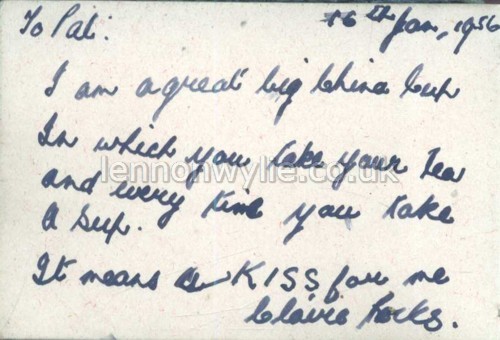 To Pat. 16th Jan, 1956
I am a great big China Cup
In which you take your Tea
lennonwylie.co.uk
and every time you take
a sup.
It means a KISS for me
Claire